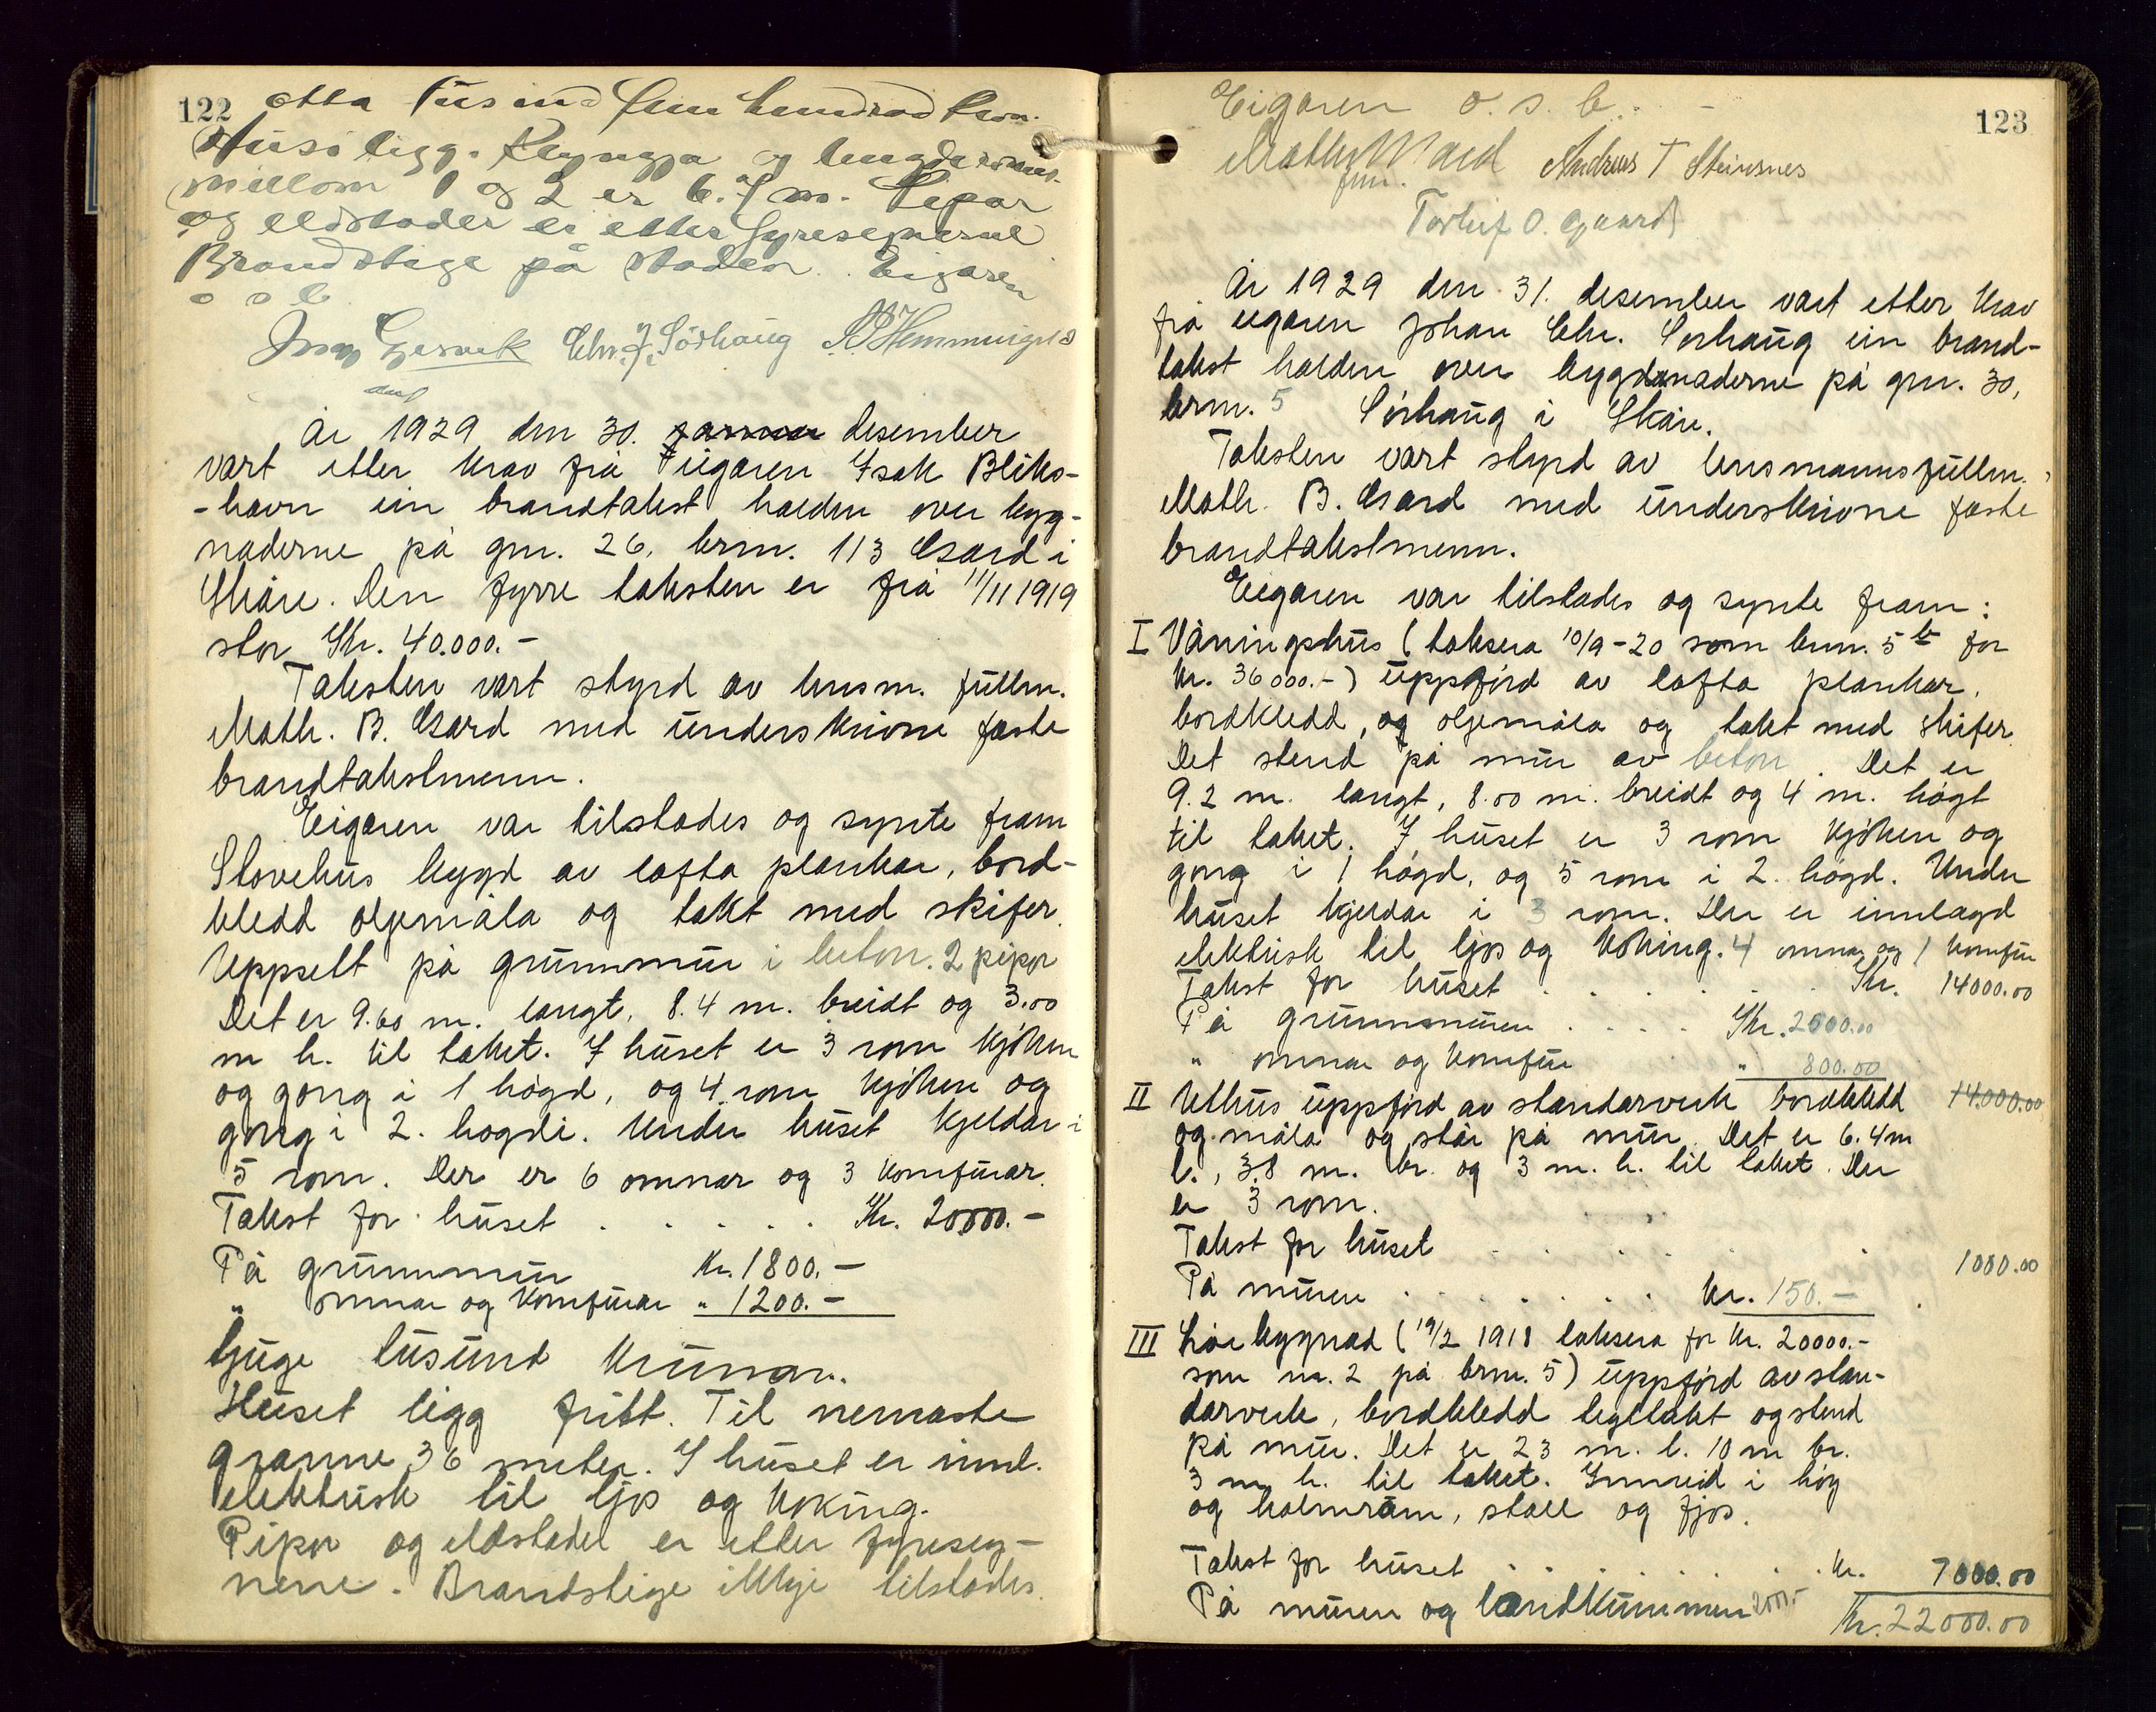 122 otta tusind fem hundrad kron.
Husi ligg i Klyngja og lengderomet
millom 1 og 2 er 6.7 m. Pipor
og eldstader er etter fyresegnerne
Brandstige på staden. Eigaren
o s b
Gjesvik Chr. J. Sörhaug Hemmingstd
År 1929 den 30. januar desember
vart etter krav frå eigaren Isak Bleks-
-havn ein brandtakst halden over byg-
naderne på grn. 26, brn. 113 Gard i
Skåre. Den fyrre taksten er frå 11/11 1919
stor Kr. 40.000.-
Taksten vart styrd av lensm. fullm.
Math. B. Gard med underskrivne faste
brandtakstmenn.
Eigaren var tilstades og synte fram
Stovehus bygd av lafta plankar, bord-
kledd oljemåla og takt med skifer.
Uppsett på grunnmur i beton. 2 pipor
Det er 9.60 m. langt, 8.4 m. breidt og 3.00
m h. til taket. I huset er 3 rom kjöken
og gong i 1 högd, og 4 rom kjöken og
gong i 2. högdi. Under huset kjeldar i
5 rom. Der er 6 omnar og 3 komfurar.
Takst for huset . . . . . Kr. 20000.-
På grunnmur Kr. 1800.-
" omnar og komfurar " 1200.-
tjuge tusund krunar.
Huset ligg fritt. Til nemaste
granne 36 meter. I huset er innl.
elektrisk til ljos og koking.
Pipor og eldstadel er etter fyreseg-
nene. Brandstige ikkje tilstades.
Eigaren o. s. b. -
123
Math B Gard Andreas T Steinsnes
fm.
Torleif O. Gaard
År 1929 den 31. desember vart etter krav
frå eigaren Johan Chr. Sörhaug ein brand-
takst halden over bygdnaderne på grn. 30,
brn. 5 Sörhaug i Skåre.
Taksten vart styrd av lensmannsfullm.
Math. B. Gard med underskrivne faste
brandtakstmenn.
Eigaren var tilstades og synte fram:
I Våningshus (taksera 10/9-20 som brn. 5 b for
kr. 36000.-) uppförd av lafta plankar.
bordkledd, og oljemåla og takt med skifer.
Det stend på mur av beton. Det er
9.2 m. langt, 8.00 m. breidt og 4 m. högt
til taket. I huset er 3 rom kjöken og
gong i 1 högd, og 5 rom i 2. högd. Under
huset kjeldar i 3 rom. Der er innlagd
elektrisk til ljos og koking. 4 omnar og 1 komfur
Takst for huset . . . . . . Kr. 14000.00
På grunnmuren . . . . Kr. 2000.00
" omnar og komfur " 800.00
II Uthus uppförd av standarverk bordkledd 14.000.00
og måla og står på mur. Det er 6.4 m
l., 3.8 m. br. og 3 m. h. til taket. Der
er 3 rom.
Takst for huset . . . . . . 1000.00
På muren . . . . . . . Kr. 150.-
III Löebygnad (19/2 1918 taksera for Kr. 20000.-
som nr. 2 på brn. 5) uppförd av stan-
darverk, bordkledd tegltakt og stend
på mur. Det er 23 m. l. 10 m br.
3 m h. til taket. Innreid i höy
og halmrom, stall og fjos.
Takst for huset . . . . . . . Kr. 7000.00
På muren og landkummen 2000.-
Kr. 22000.00